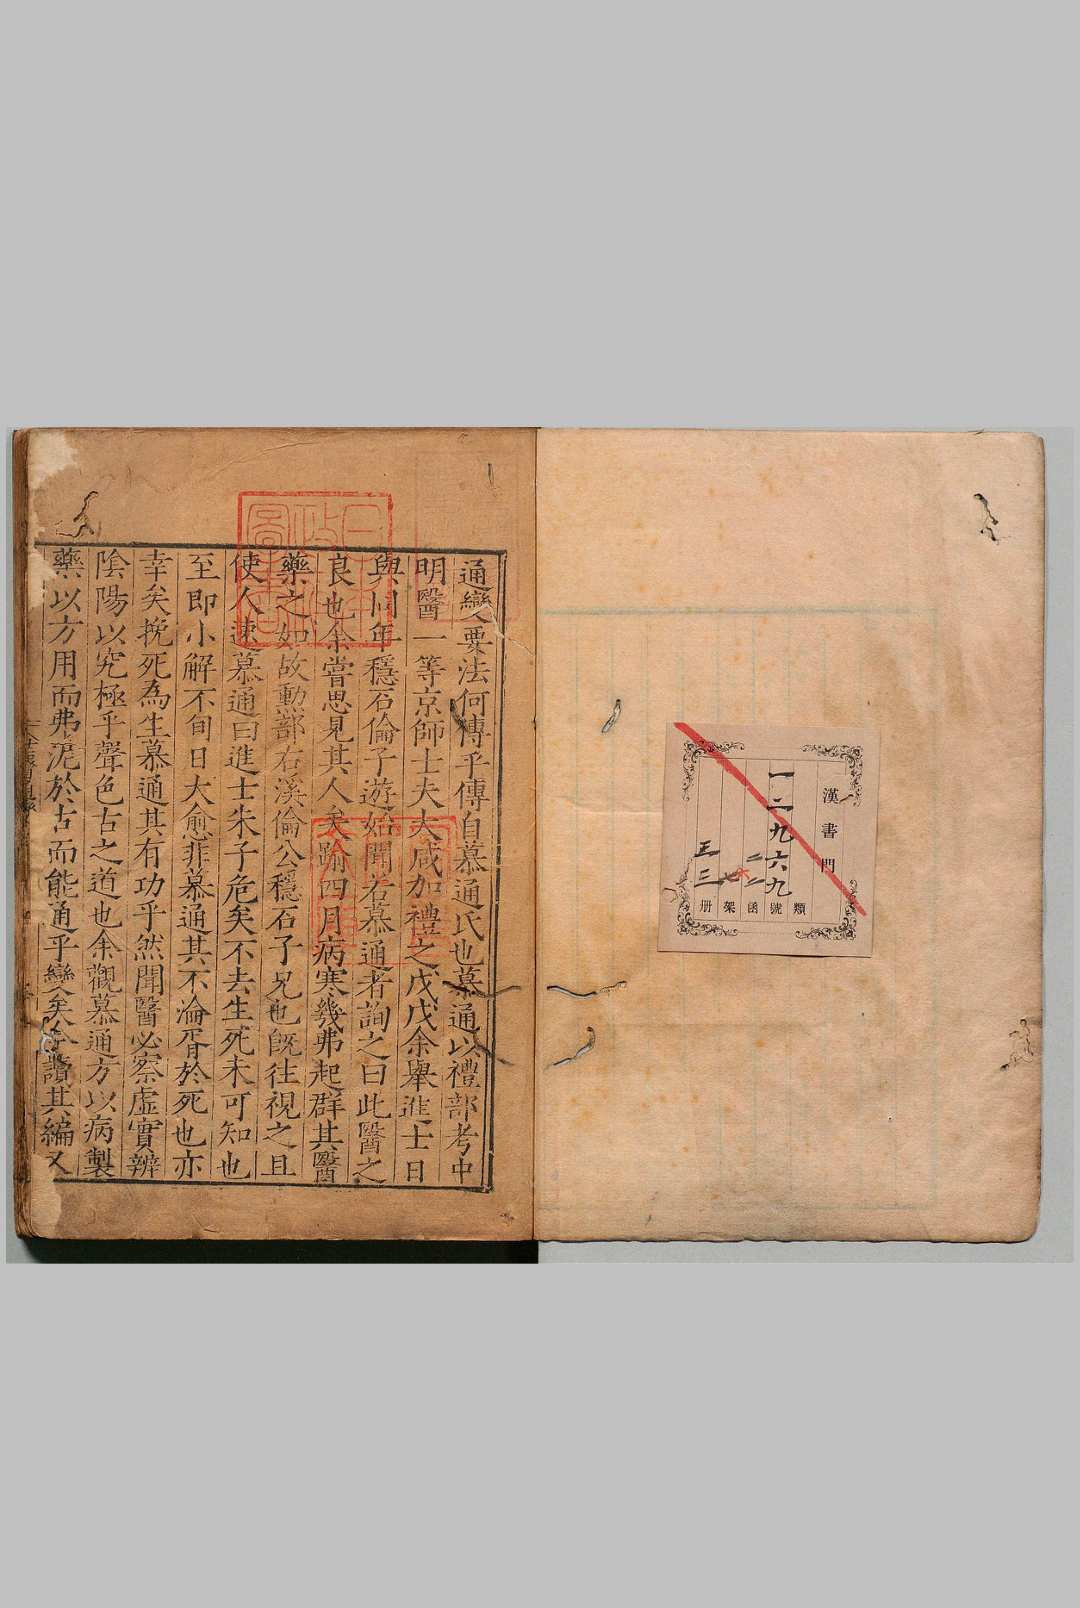 漢書門
一二九六九
類 號 函 架 册
三三
通變要法何傳乎傳自慕通氏也慕通以禮部考中
明醫一等京師士夫大咸加禮之戊戌余舉進士日
與同年穩石倫子遊始聞若慕通者詢之曰此醫之
良也余嘗思見其人矣踰四月病寒幾弗起群其醫
藥之如故勲部右溪倫公穩石子兄也旣往視之且
使人速慕通曰進士朱子危矣不去生死未可知也
至即小解不旬日大愈非慕通其不淪胥於死也亦
幸矣挽死為生慕通其有功乎然聞醫必察虛實辨
陰陽以究極乎聲色古之道也余觀慕通方以病製
藥以方用而弗泥於古而能通乎變矣余讀其編又